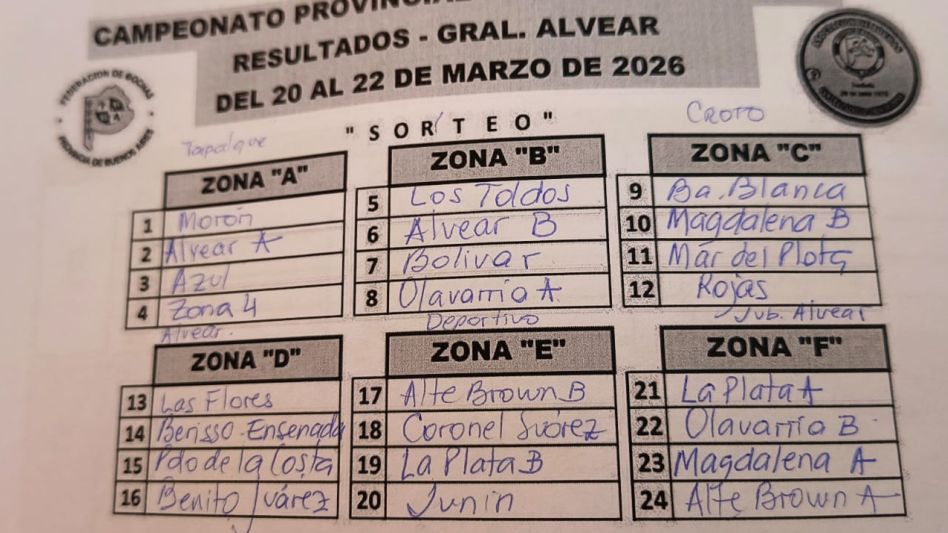 CAMPEONATO PROVINCIAL
RESULTADOS - GRAL. ALVEAR
DEL 20 AL 22 DE MARZO DE 2026
FEDERACION DE BOCHAS
PROVINCIA DE BUENOS AIRES
"SORTEO"
Tapalque
ZONA "A"
1 Morón
2 Alvear A
3 Azul
4 Zona 4
ZONA "B"
5 Los Toldos
6 Alvear B
7 Bolivar
8 Olavarria A
CROTO
ZONA "C"
9 Ba. Blanca
10 Magdalena B
11 Mar del Plata
12 Rojas
Alvear.
ZONA "D"
13 Las Flores
14 Berisso-Ensenada
15 Pdo de la Costa
16 Benito Juárez
Deportivo
ZONA "E"
17 Alte Brown B
18 Coronel Suárez
19 La Plata B
20 Junin
Jub. Alvear
ZONA "F"
21 La Plata A
22 Olavarria B
23 Magdalena A
24 Alte Brown A